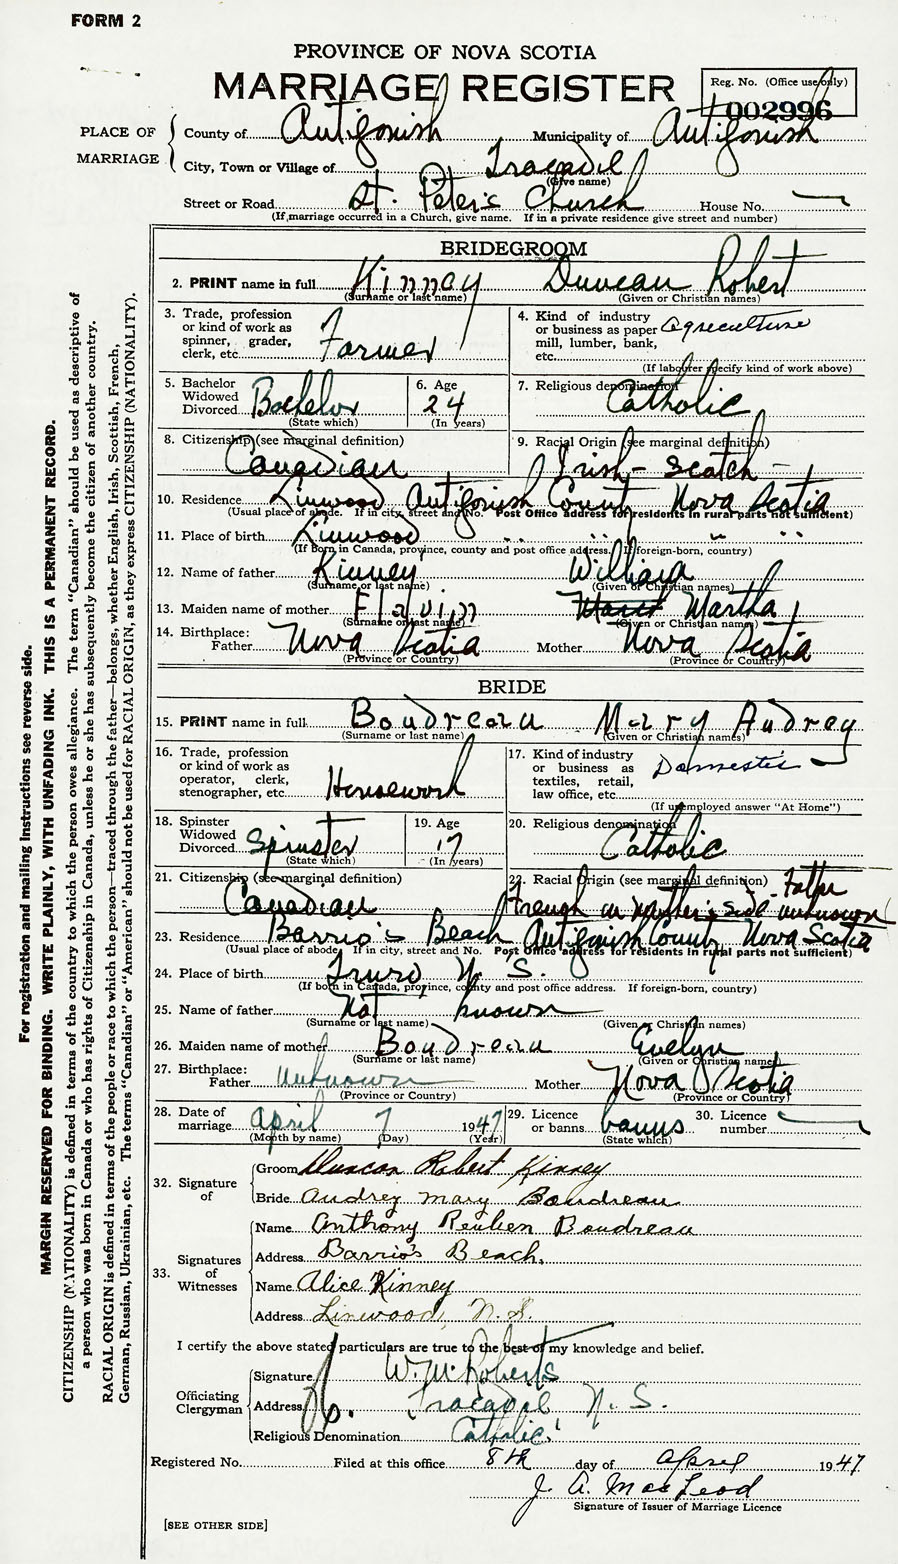 FORM 2
PROVINCE OF NOVA SCOTIA
MARRIAGE REGISTER
Reg. No. (Office use only)
002996
PLACE OF MARRIAGE
County of Antigonish Municipality of Antigonish
City, Town or Village of Tracadie
(Give name)
Street or Road St. Peter's Church House No.
(If marriage occurred in a Church, give name. If in a private residence give street and number)
BRIDEGROOM
2. PRINT name in full Kinney Duncan Robert
(Surname or last name) (Given or Christian names)
3. Trade, profession or kind of work as spinner, grader, clerk, etc. Farmer
4. Kind of industry or business as paper mill, lumber, bank, etc. Agriculture
(If labourer specify kind of work above)
5. Bachelor Widowed Divorced Bachelor
(State which)
6. Age 24
(In years)
7. Religious denomination Catholic
8. Citizenship (see marginal definition)
Canadian
9. Racial Origin (see marginal definition)
Irish - Scotch -
10. Residence Linwood Antigonish County Nova Scotia
(Usual place of abode. If in city, street and No. Post Office address for residents in rural parts not sufficient)
11. Place of birth Linwood " " "
(If Born in Canada, province, county and post office address. If foreign-born, country)
12. Name of father Kinney William
(Surname or last name) (Given or Christian names)
13. Maiden name of mother Flavin Martha
(Surname or last name) (Given or Christian names)
14. Birthplace: Father Nova Scotia Mother Nova Scotia
(Province or Country) (Province or Country)
BRIDE
15. PRINT name in full Boudreau Mary Audrey
(Surname or last name) (Given or Christian names)
16. Trade, profession or kind of work as operator, clerk, stenographer, etc. Housework
17. Kind of industry or business as textiles, retail, law office, etc. Domestic
(If unemployed answer "At Home")
18. Spinster Widowed Divorced Spinster
(State which)
19. Age 17
(In years)
20. Religious denomination Catholic
21. Citizenship (see marginal definition)
Canadian
22. Racial Origin (see marginal definition) Father
French on Mother's side unknown
23. Residence Barrio's Beach Antigonish County Nova Scotia
(Usual place of abode. If in city, street and No. Post Office address for residents in rural parts not sufficient)
24. Place of birth Truro N. S.
(If born in Canada, province, county and post office address. If foreign-born, country)
25. Name of father Not known
(Surname or last name) (Given or Christian names)
26. Maiden name of mother Boudreau Evelyn
(Surname or last name) (Given or Christian names)
27. Birthplace: Father Unknown Mother Nova Scotia
(Province or Country) (Province or Country)
28. Date of marriage April 7 1947
(Month by name) (Day) (Year)
29. Licence or banns banns
(State which)
30. Licence number
32. Signature of
Groom Duncan Robert Kinney
Bride Audrey Mary Boudreau
33. Signatures of Witnesses
Name Anthony Reuben Boudreau
Address Barrio's Beach,
Name Alice Kinney
Address Linwood, N. S.
I certify the above stated particulars are true to the best of my knowledge and belief.
Officiating Clergyman
Signature W. M. Roberts
Address Tracadie N. S.
Religious Denomination Catholic
Registered No. Filed at this office 8th day of April 1947
J. A. MacLeod
Signature of Issuer of Marriage Licence
[SEE OTHER SIDE]
For registration and mailing instructions see reverse side.
MARGIN RESERVED FOR BINDING. WRITE PLAINLY, WITH UNFADING INK. THIS IS A PERMANENT RECORD.
CITIZENSHIP (NATIONALITY) is defined in terms of the country to which the person owes allegiance. The term "Canadian" should be used as descriptive of
a person who was born in Canada or who has rights of Citizenship in Canada, unless he or she has subsequently become the citizen of another country.
RACIAL ORIGIN is defined in terms of the people or race to which the person—traced through the father—belongs, whether English, Irish, Scottish, French,
German, Russian, Ukrainian, etc. The terms "Canadian" or "American" should not be used for RACIAL ORIGIN, as they express CITIZENSHIP (NATIONALITY).